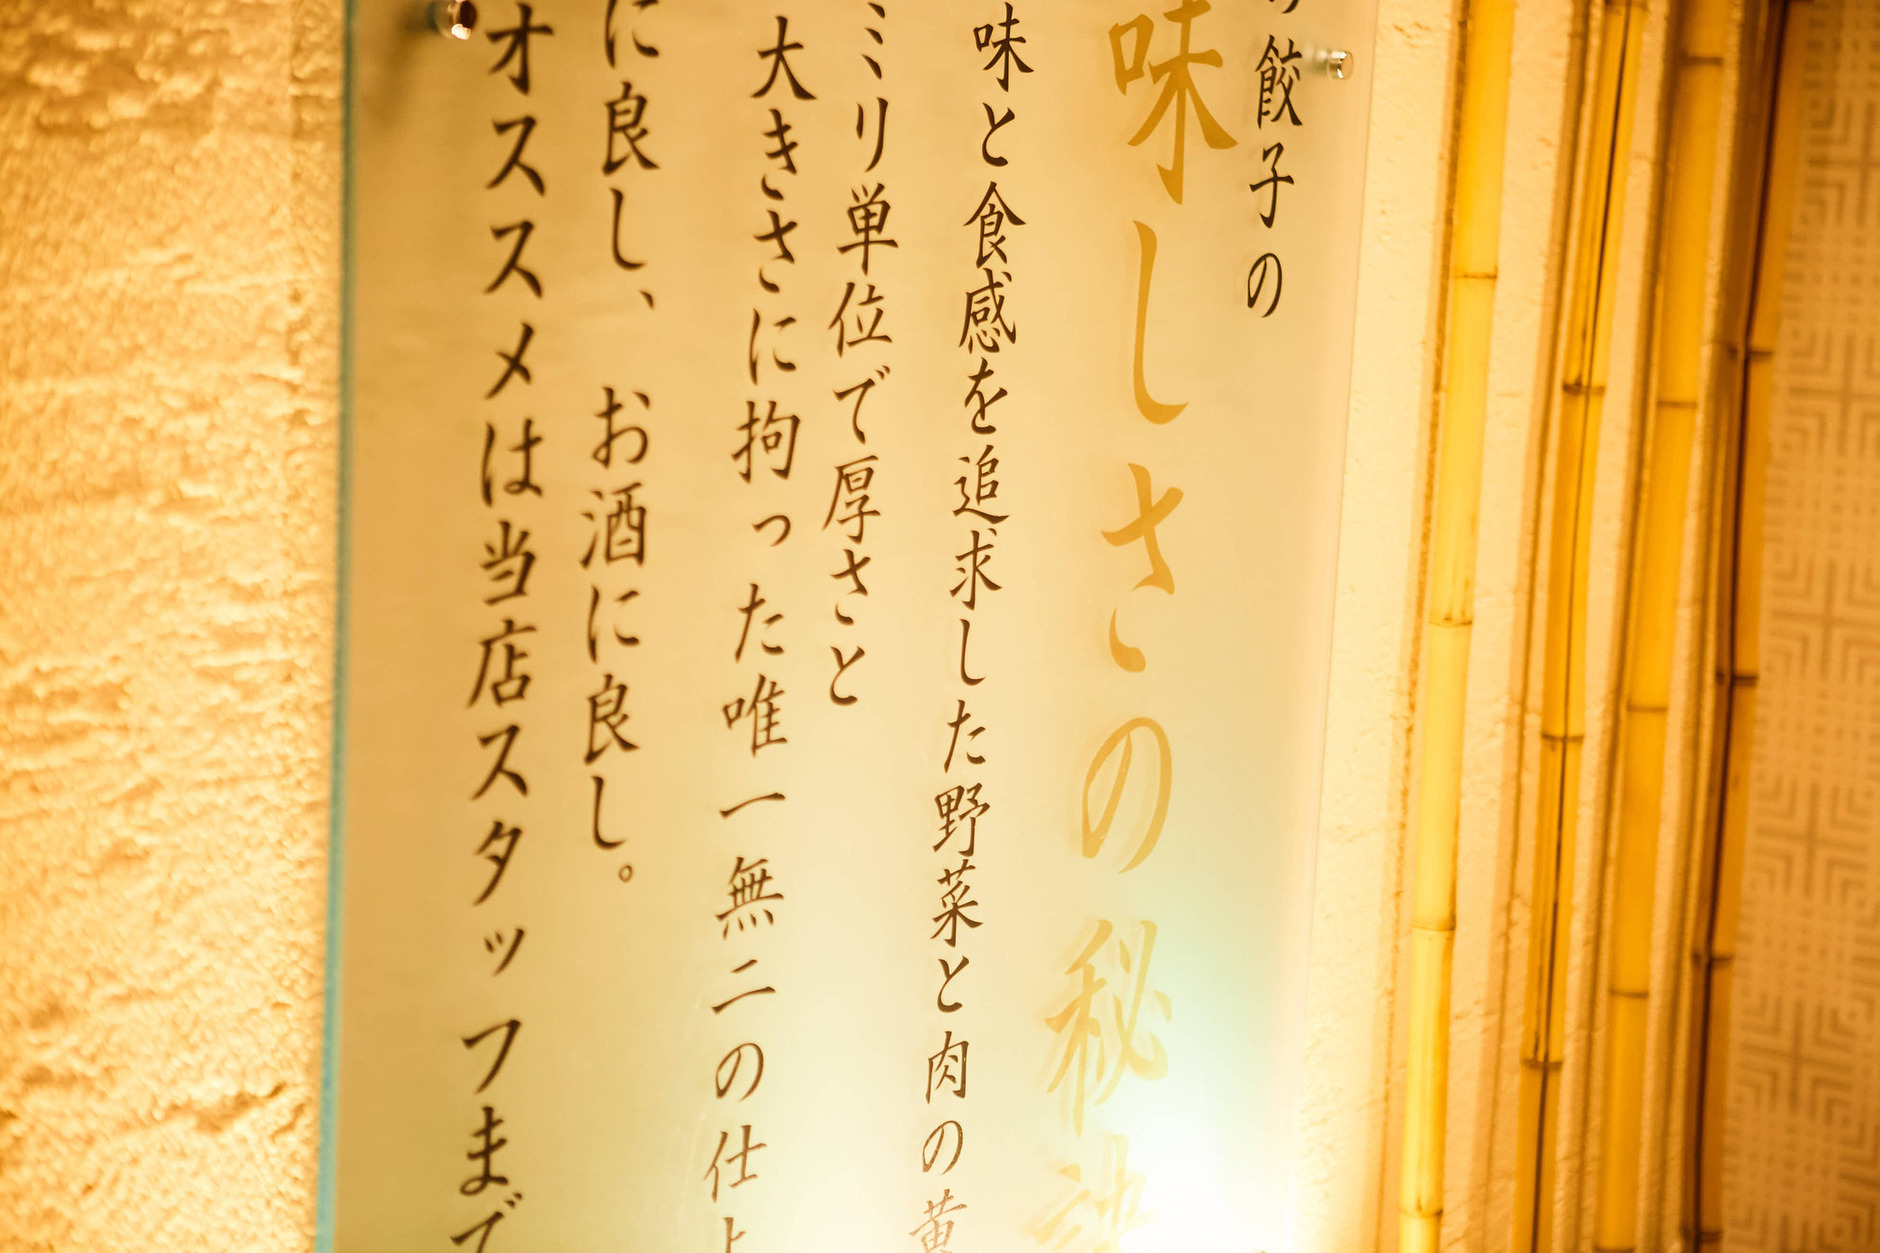 餃子の
味しさの秘訣
味と食感を追求した野菜と肉の黄
ミリ単位で厚さと
大きさに拘った唯一無二の仕上
に良し、お酒に良し。
オススメは当店スタッフまで